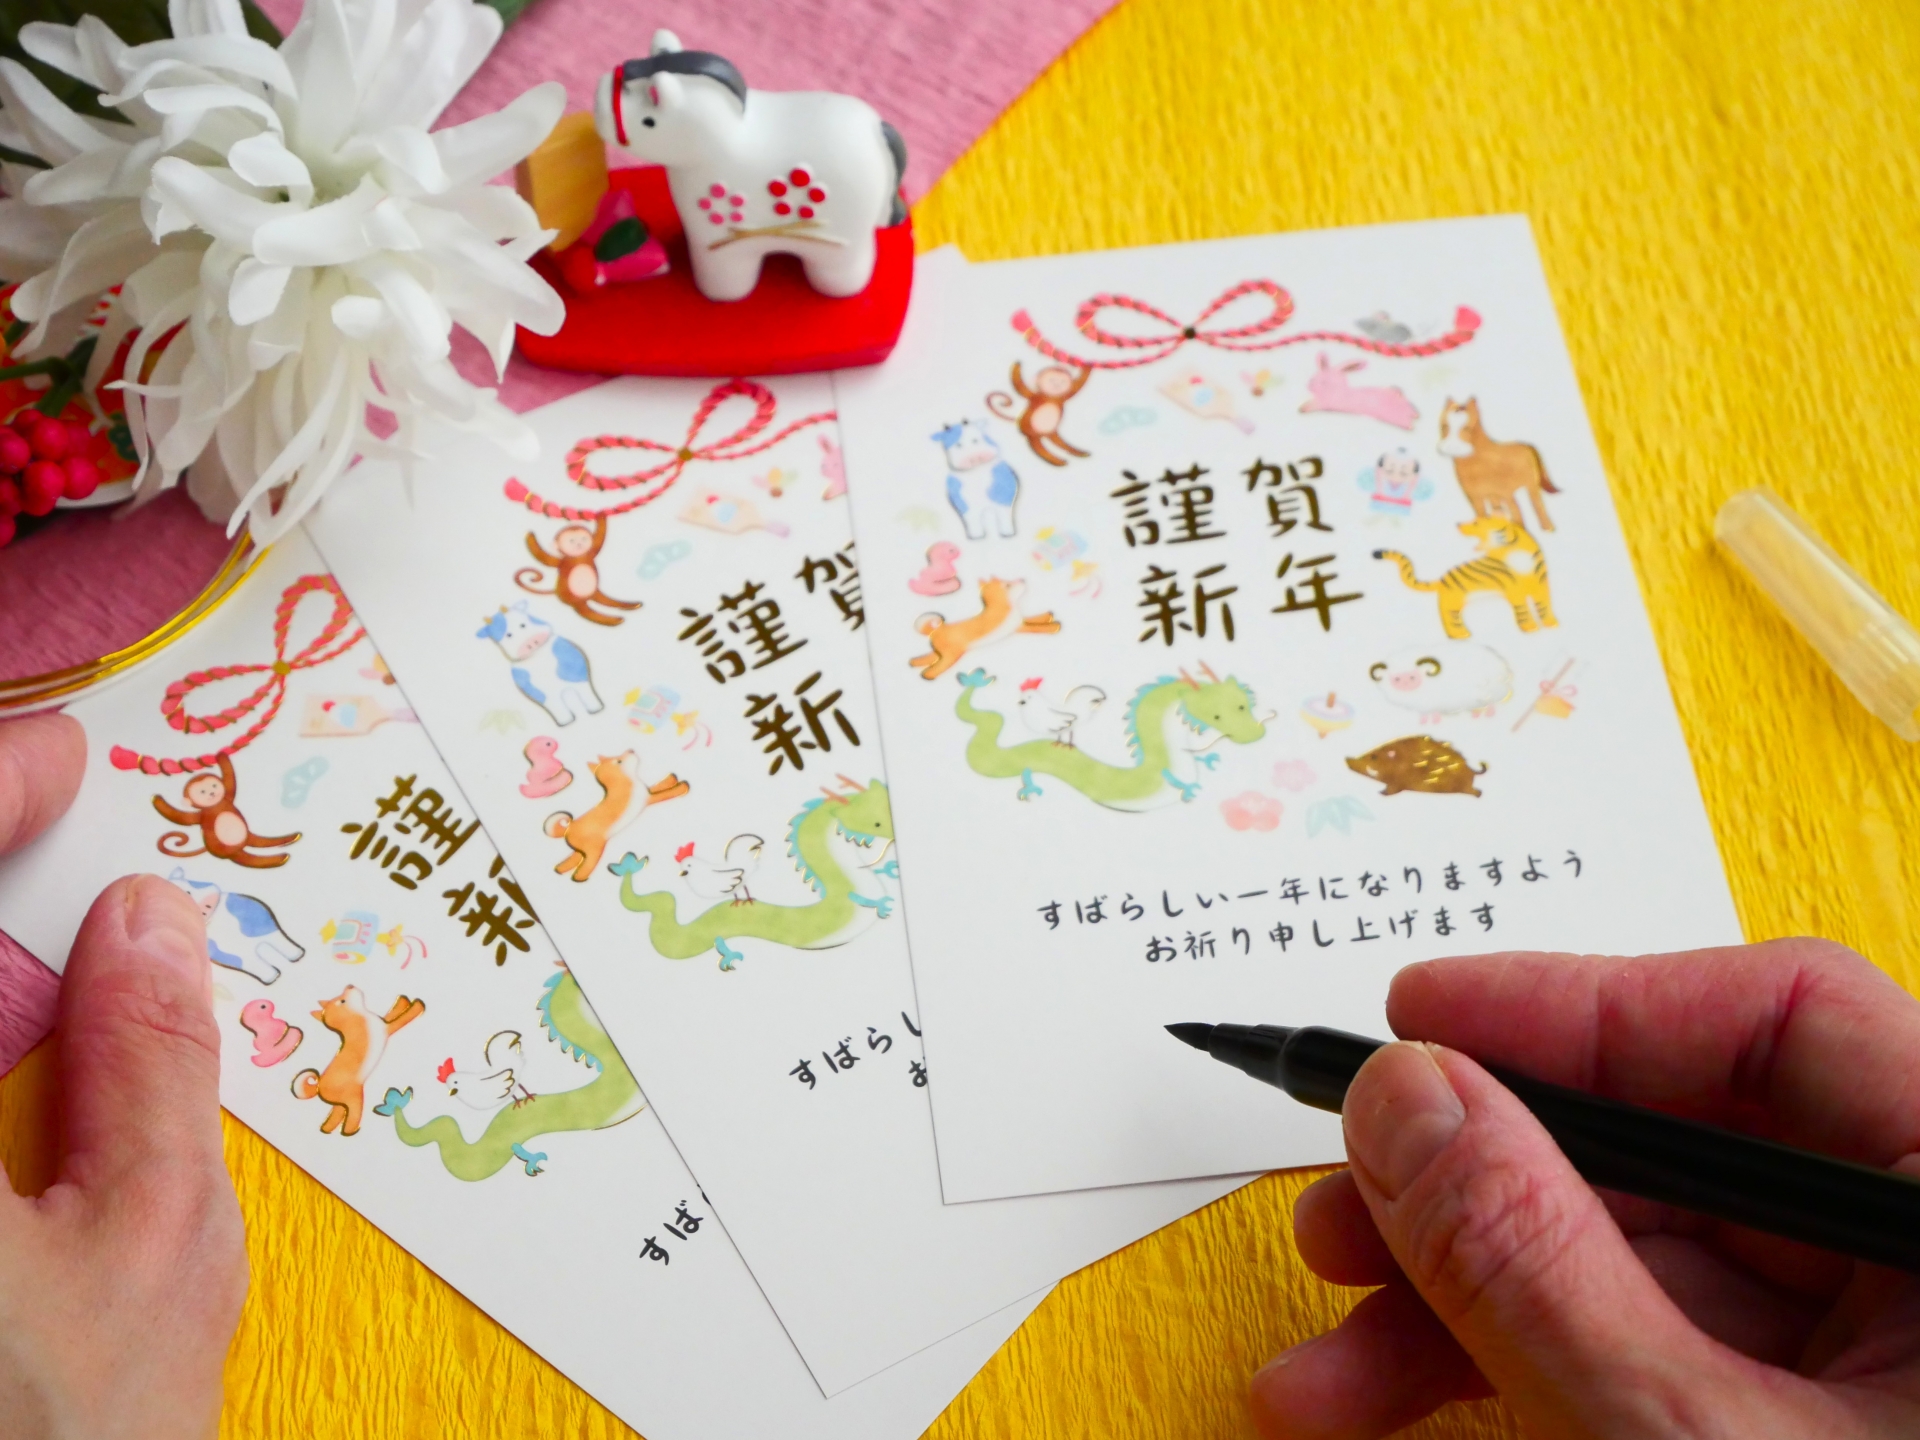 謹賀
新年
すばらしい一年になりますよう
お祈り申し上げます
謹賀
新
すばらし
お
謹
新
すば